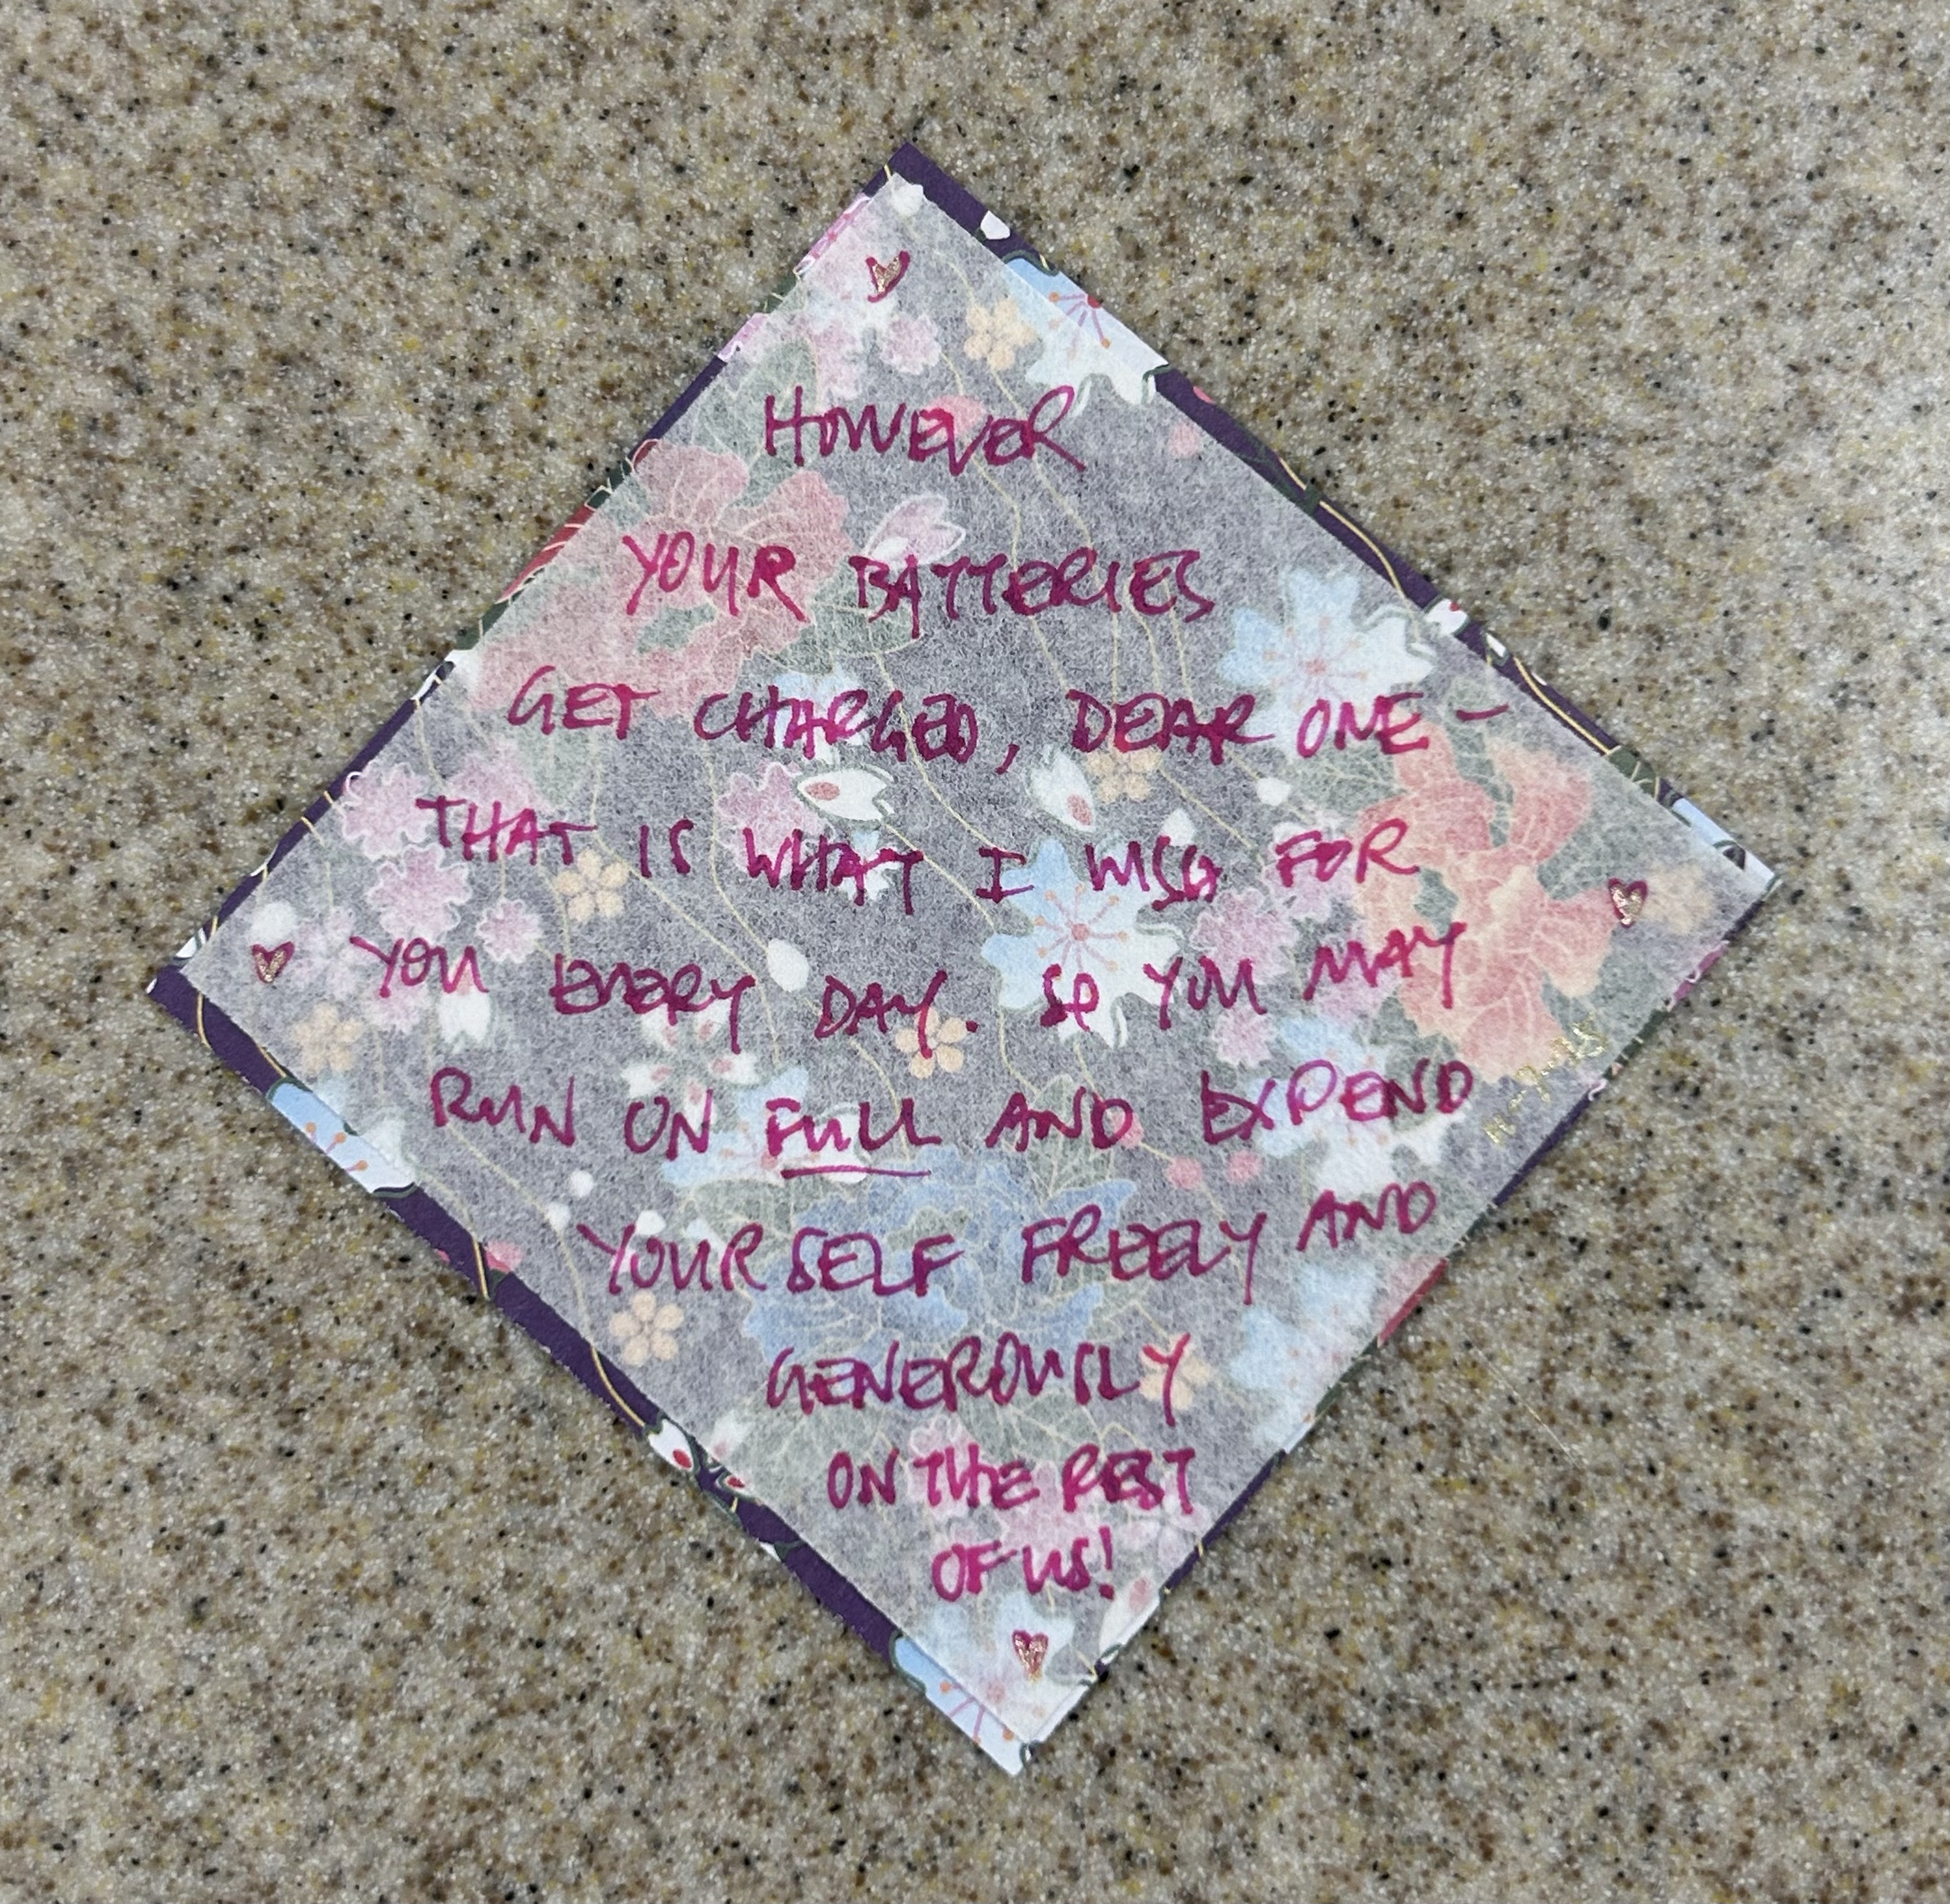 HOWEVER
YOUR BATTERIES
GET CHARGED, DEAR ONE -
THAT IS WHAT I WISH FOR
YOU EVERY DAY. SO YOU MAY
RUN ON FULL AND EXPEND
YOURSELF FREELY AND
GENEROUSLY
ON THE REST
OF US!